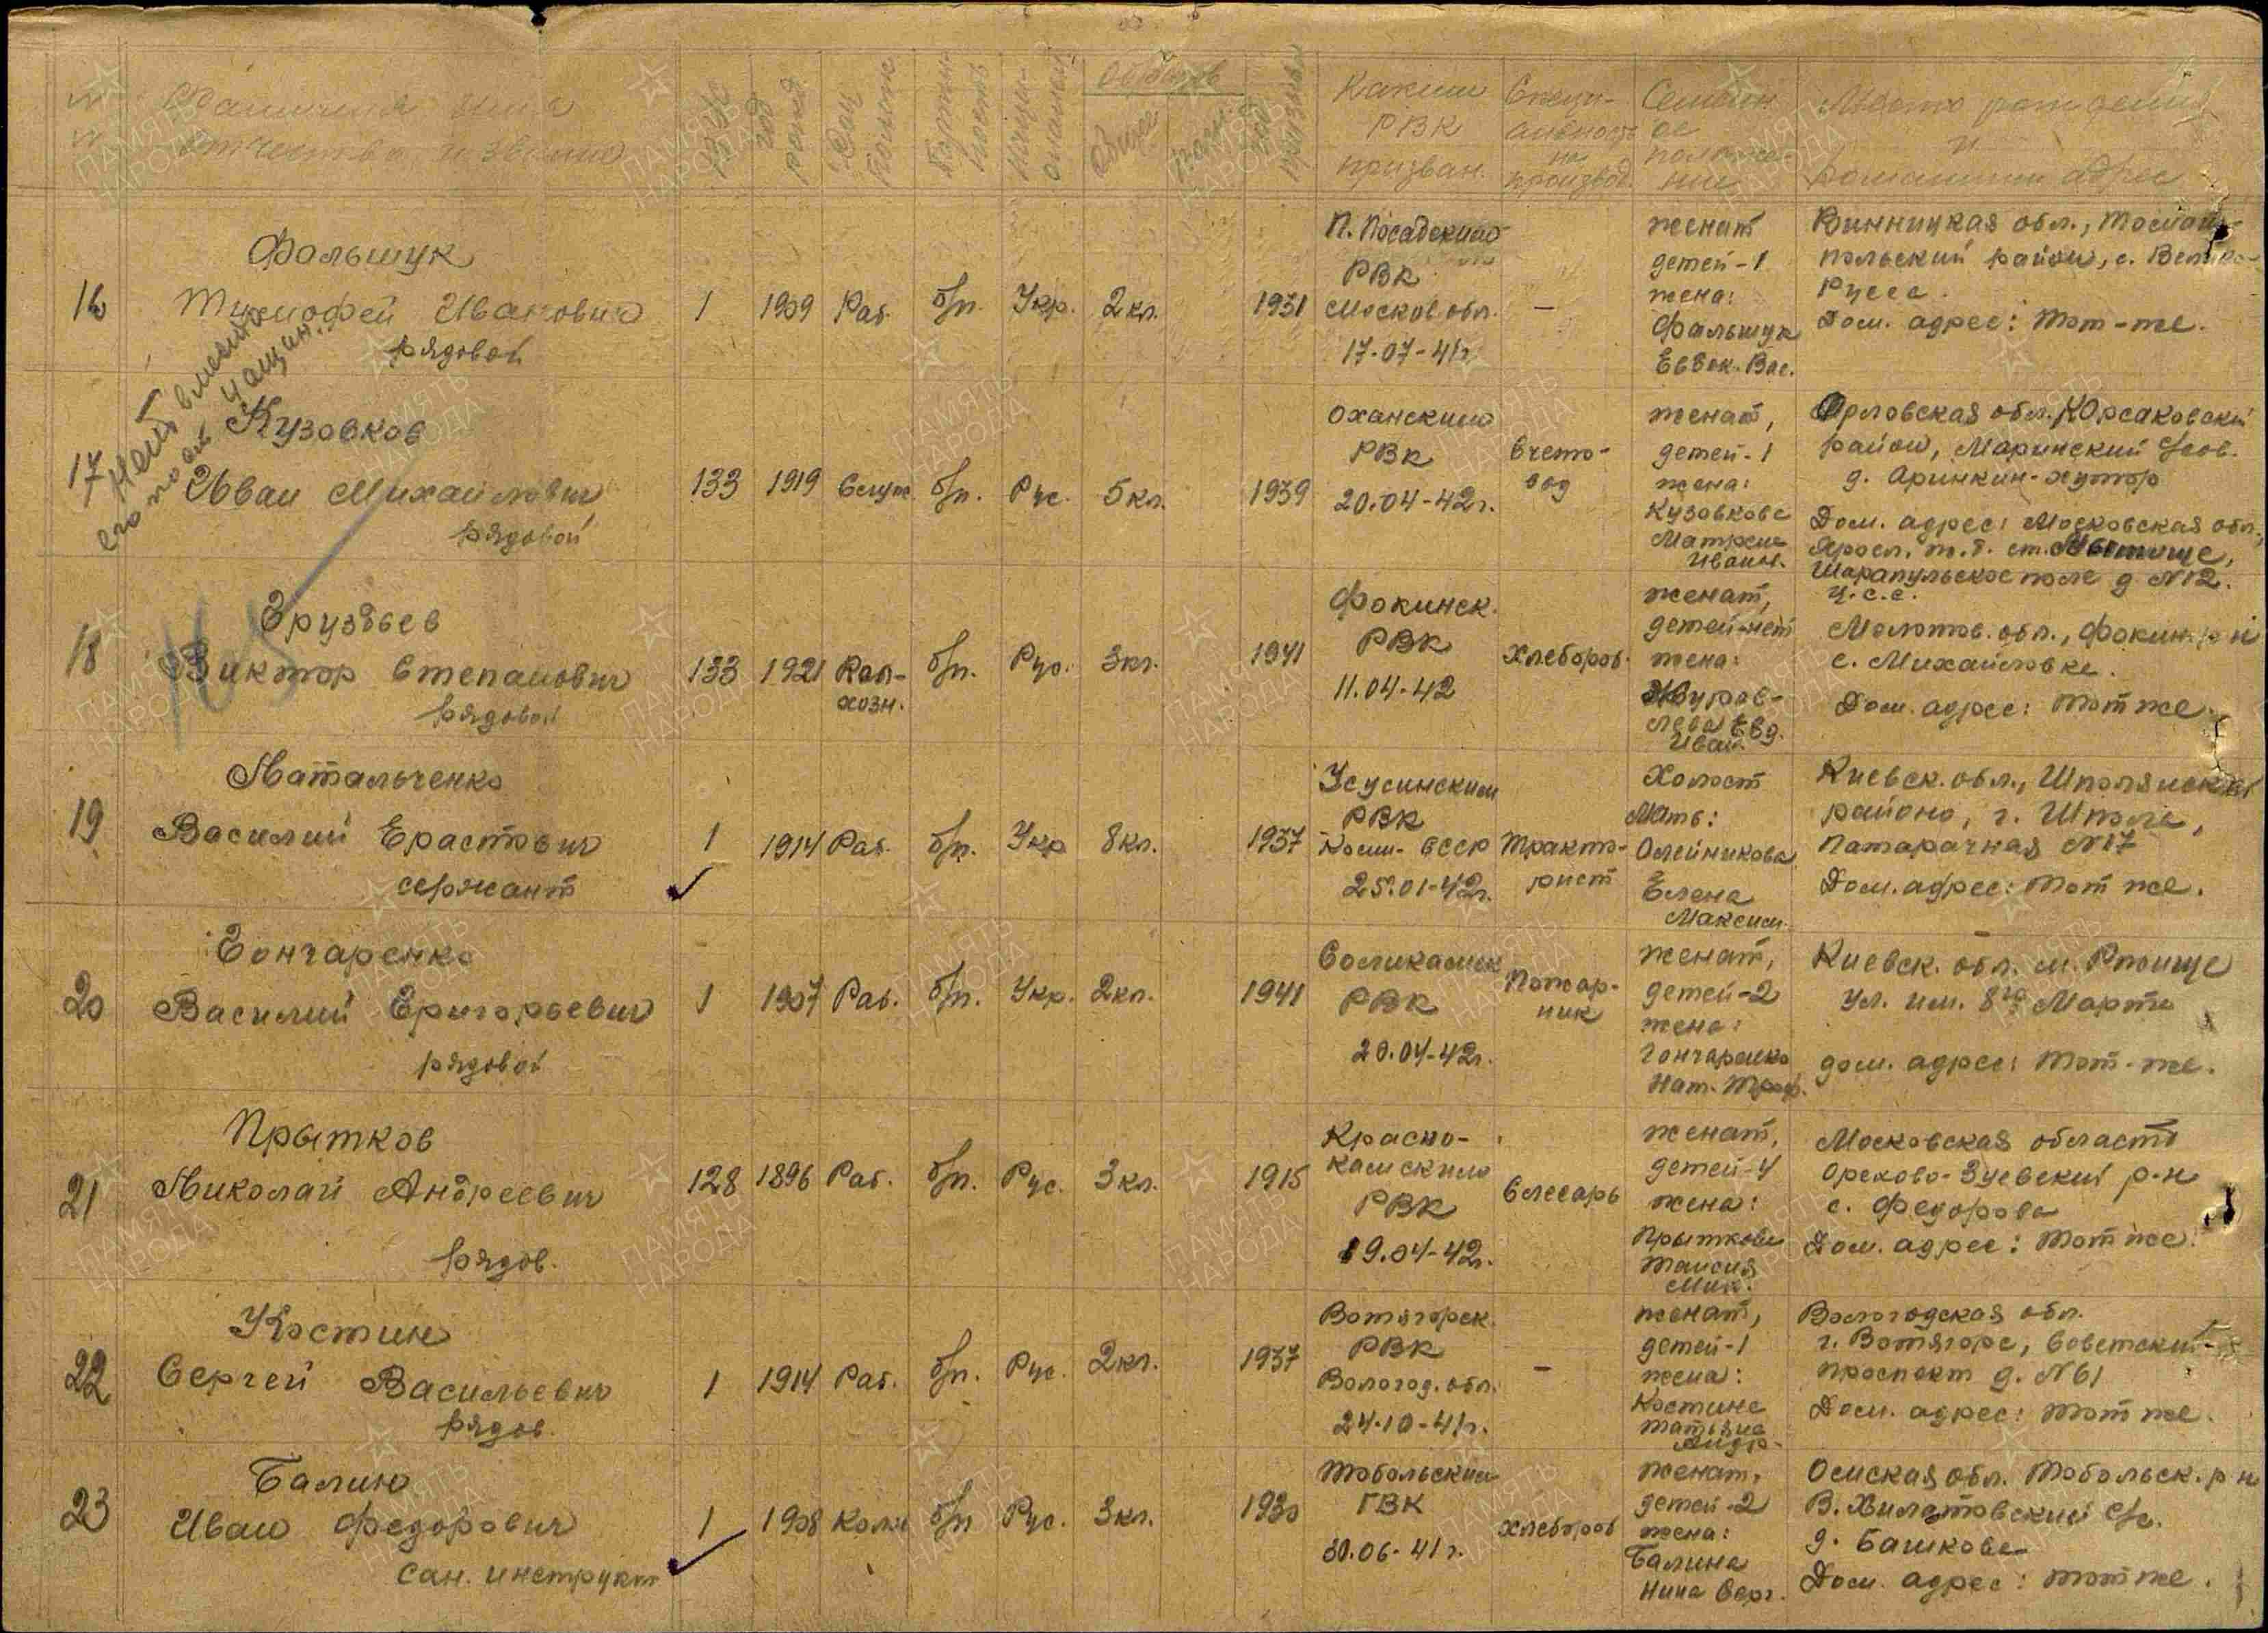 Фамилия имя
отчество и звание
ВУС
год рожд.
Соц. полож.
Партийность
Национальн.
Образов.
общее
год призыва
Каким РВК призван.
Специальность на производ.
Семейное положение
Место рождения и домашний адрес
16
Фальшук
Тимофей Иванович
рядовой
1
1909
Раб.
б/п.
Укр.
2 кл.
1931
П. Посадским
РВК
Москов обл.
17-07-41 г.
—
женат
детей-1
жена:
Фальшук
Евдок. Вас.
Винницкая обл.,
польский район, с. Велико-
Русса.
Дом. адрес: Тот-же.
17
Нет вместо
его
Кузовков
Иван Михайлович
рядовой
133
1919
Служ.
б/п.
Рус.
5 кл.
1939
Оханским
РВК
20.04-42 г.
Счето-
вод
женат,
детей-1
жена:
Кузовкова
Матрена
Иванов.
Орловская обл. Корсаковский
район, Маринский с/сов.
д. Аринкин-хутор
Дом. адрес: Московская обл.,
Яросл. ж.д. ст. Мытище,
Шарапульское поле д №12.
ч.с.с.
18
Груздьев
Виктор Степанович
рядовой
133
1921
Кол-
хозн.
б/п.
Рус.
3 кл.
1941
Фокинск.
РВК
11.04-42
Хлебороб.
женат,
детей-нет
жена:
Журав-
лева Евд.
Иван.
Молотов. обл., Фокин. р-н
с. Михайловка.
Дом. адрес: Тот же.
19
Натальченко
Василий Ерастович
сержант
1
1914
Раб.
б/п.
Укр
8 кл.
1937
Усусинским
РВК
Коми-АССР
25.01-42 г.
Тракто-
рист
Холост
Мать:
Олейникова
Елена
Максим.
Киевск. обл., Шполянский
района, г. Шпола,
№17
Дом. адрес: Тот же.
20
Гончаренко
Василий Григорьевич
рядовой
1
1907
Раб.
б/п.
Укр.
2 кл.
1941
Соликамск
РВК
20.04-42 г.
Пожар-
ник
женат,
детей-2
жена:
Гончаренко
Нат. Троф.
Киевск. обл. м. Ржище
ул. им. 8го Марта
дом. адрес: Тот-же.
21
Прытков
Николай Андреевич
рядов.
128
1896
Раб.
б/п.
Рус.
3 кл.
1915
Красно-
камским
РВК
19.04-42 г.
Слесарь
женат,
детей-4
жена:
Прыткова
Таисия
Мих.
Московская область
Орехово-Зуевский р-н
с. Федорова
Дом. адрес: Тот же.
22
Костин
Сергей Васильевич
рядов.
1
1914
Раб.
б/п.
Рус.
2 кл.
1937
Вотягорск.
РВК
Вологод. обл.
24-10-41 г.
—
женат,
детей-1
жена:
Костина
Татьяна
Андр.
Вологодская обл.
г. Вотягорс, Советский
проспект д. №61
Дом. адрес: Тот же.
23
Балин
Иван Федорович
Сан. инструкт
1
1908
Колх
б/п
Рус.
3 кл.
1930
Тобольским
ГВК
30.06-41 г.
Хлебороб
женат,
детей-2
жена:
Балина
Нина Серг.
Омская обл. Тобольск. р-н
В. Филатовский с/с.
д. Башкова
Дом. адрес: Тот же.
ПАМЯТЬ
НАРОДА